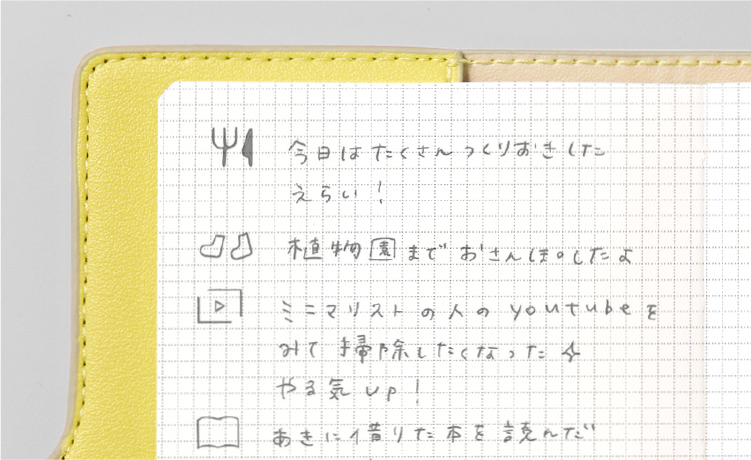 今日はたくさんつくりおきした
えらい!
植物園までおさんぽしたよ
ミニマリストの人のyoutubeを
みて掃除したくなった
やる気up!
あきに借りた本を読んだ